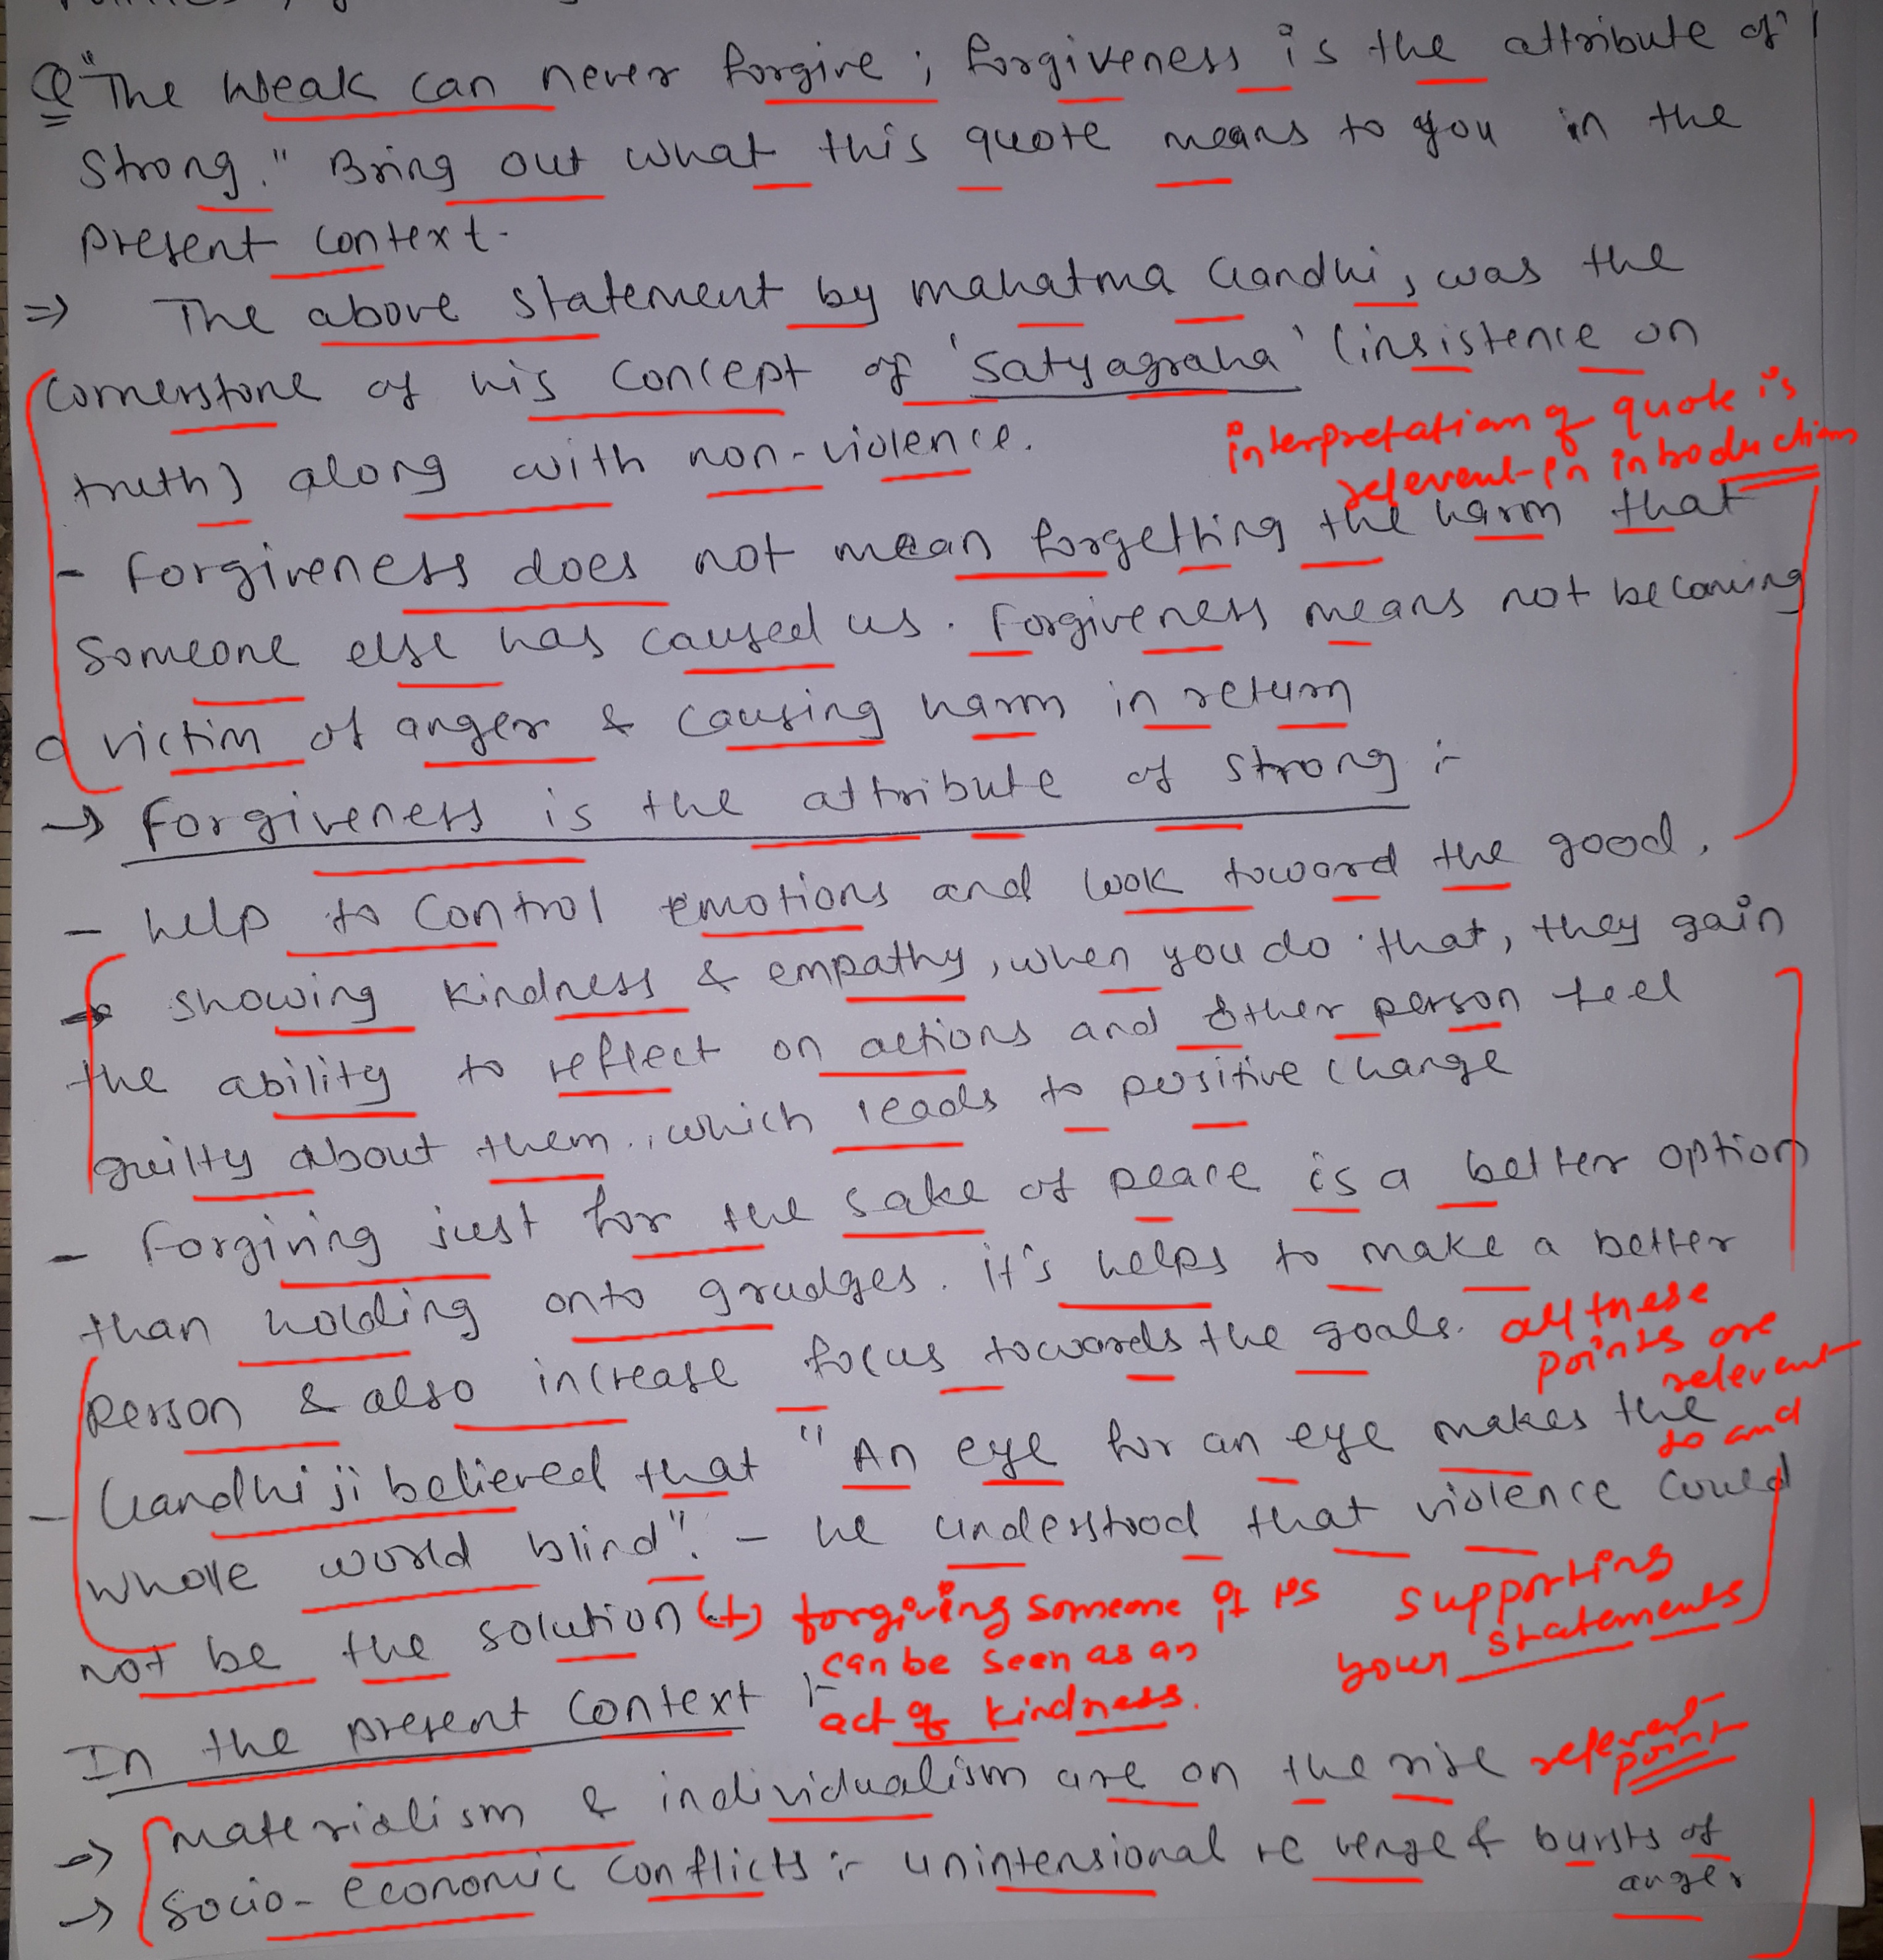 Q "The Weak can never forgive ; forgiveness is the attribute of
Strong." Bring out what this quote means to you in the
present context.
=> The above statement by mahatma Gandhi, was the
cornerstone of his concept of 'Satyagraha' (insistence on
truth) along with non-violence.
interpretation of quote is
relevent in introduction
- Forgiveness does not mean forgetting the harm that
Someone else has caused us. Forgiveness means not becoming
a victim of anger & causing harm in return
→ Forgiveness is the attribute of strong :-
- help to control emotions and look toward the good.
→ showing kindness & empathy, when you do that, they gain
the ability to reflect on actions and other person feel
guilty about them., which leads to positive change
- Forgiving just for the sake of peace is a better option
than holding onto grudges. it's helps to make a better
person & also increase focus towards the goals.
all these
points are
relevent
to and
supporting
your statements
- Gandhi ji believed that "An eye for an eye makes the
whole world blind". - he understood that violence could
not be the solution
(+) forgiving someone if its
can be seen as an
act of kindness.
In the present context :-
→ Materialism & individualism are on the rise
relevent
point
→ Socio-economic conflicts :- unintensional revenge & bursts of
anger